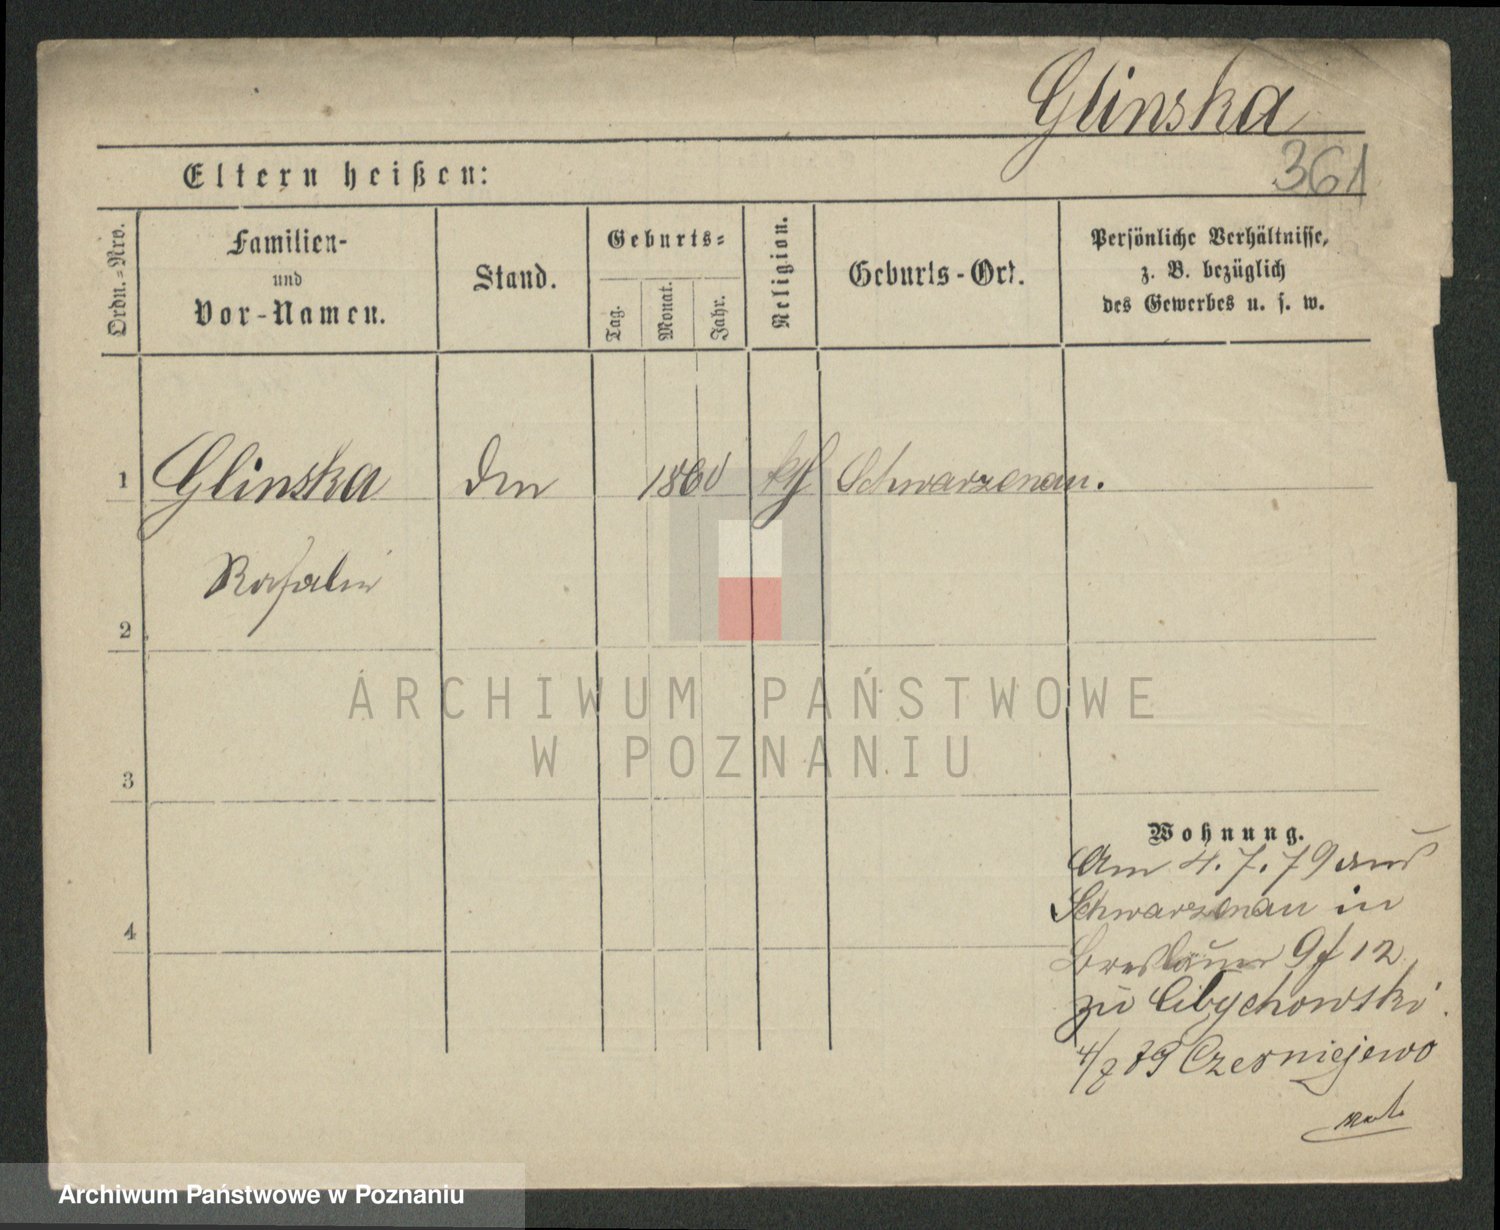 Glinska
361
Eltern heißen:
Ordn.=Nro.
Familien-
und
Vor-Namen.
Stand.
Geburts=
Tag.
Monat.
Jahr.
Religion.
Geburts-Ort.
Persönliche Verhältnisse,
z. B. bezüglich
des Gewerbes u. s. w.
1 Glinska 1860 kth Schwarzenau.
2
3
4
ARCHIWUM PAŃSTWOWE
W POZNANIU
Wohnung.
Am 4.7.79 aus
Schwarzenau in
12
zu Cibychowski
4/7 79 Czerniejewo
Archiwum Państwowe w Poznaniu